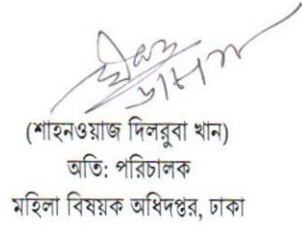 (শাহনওয়াজ দিলরুবা খান)
অতি: পরিচালক
মহিলা বিষয়ক অধিদপ্তর, ঢাকা